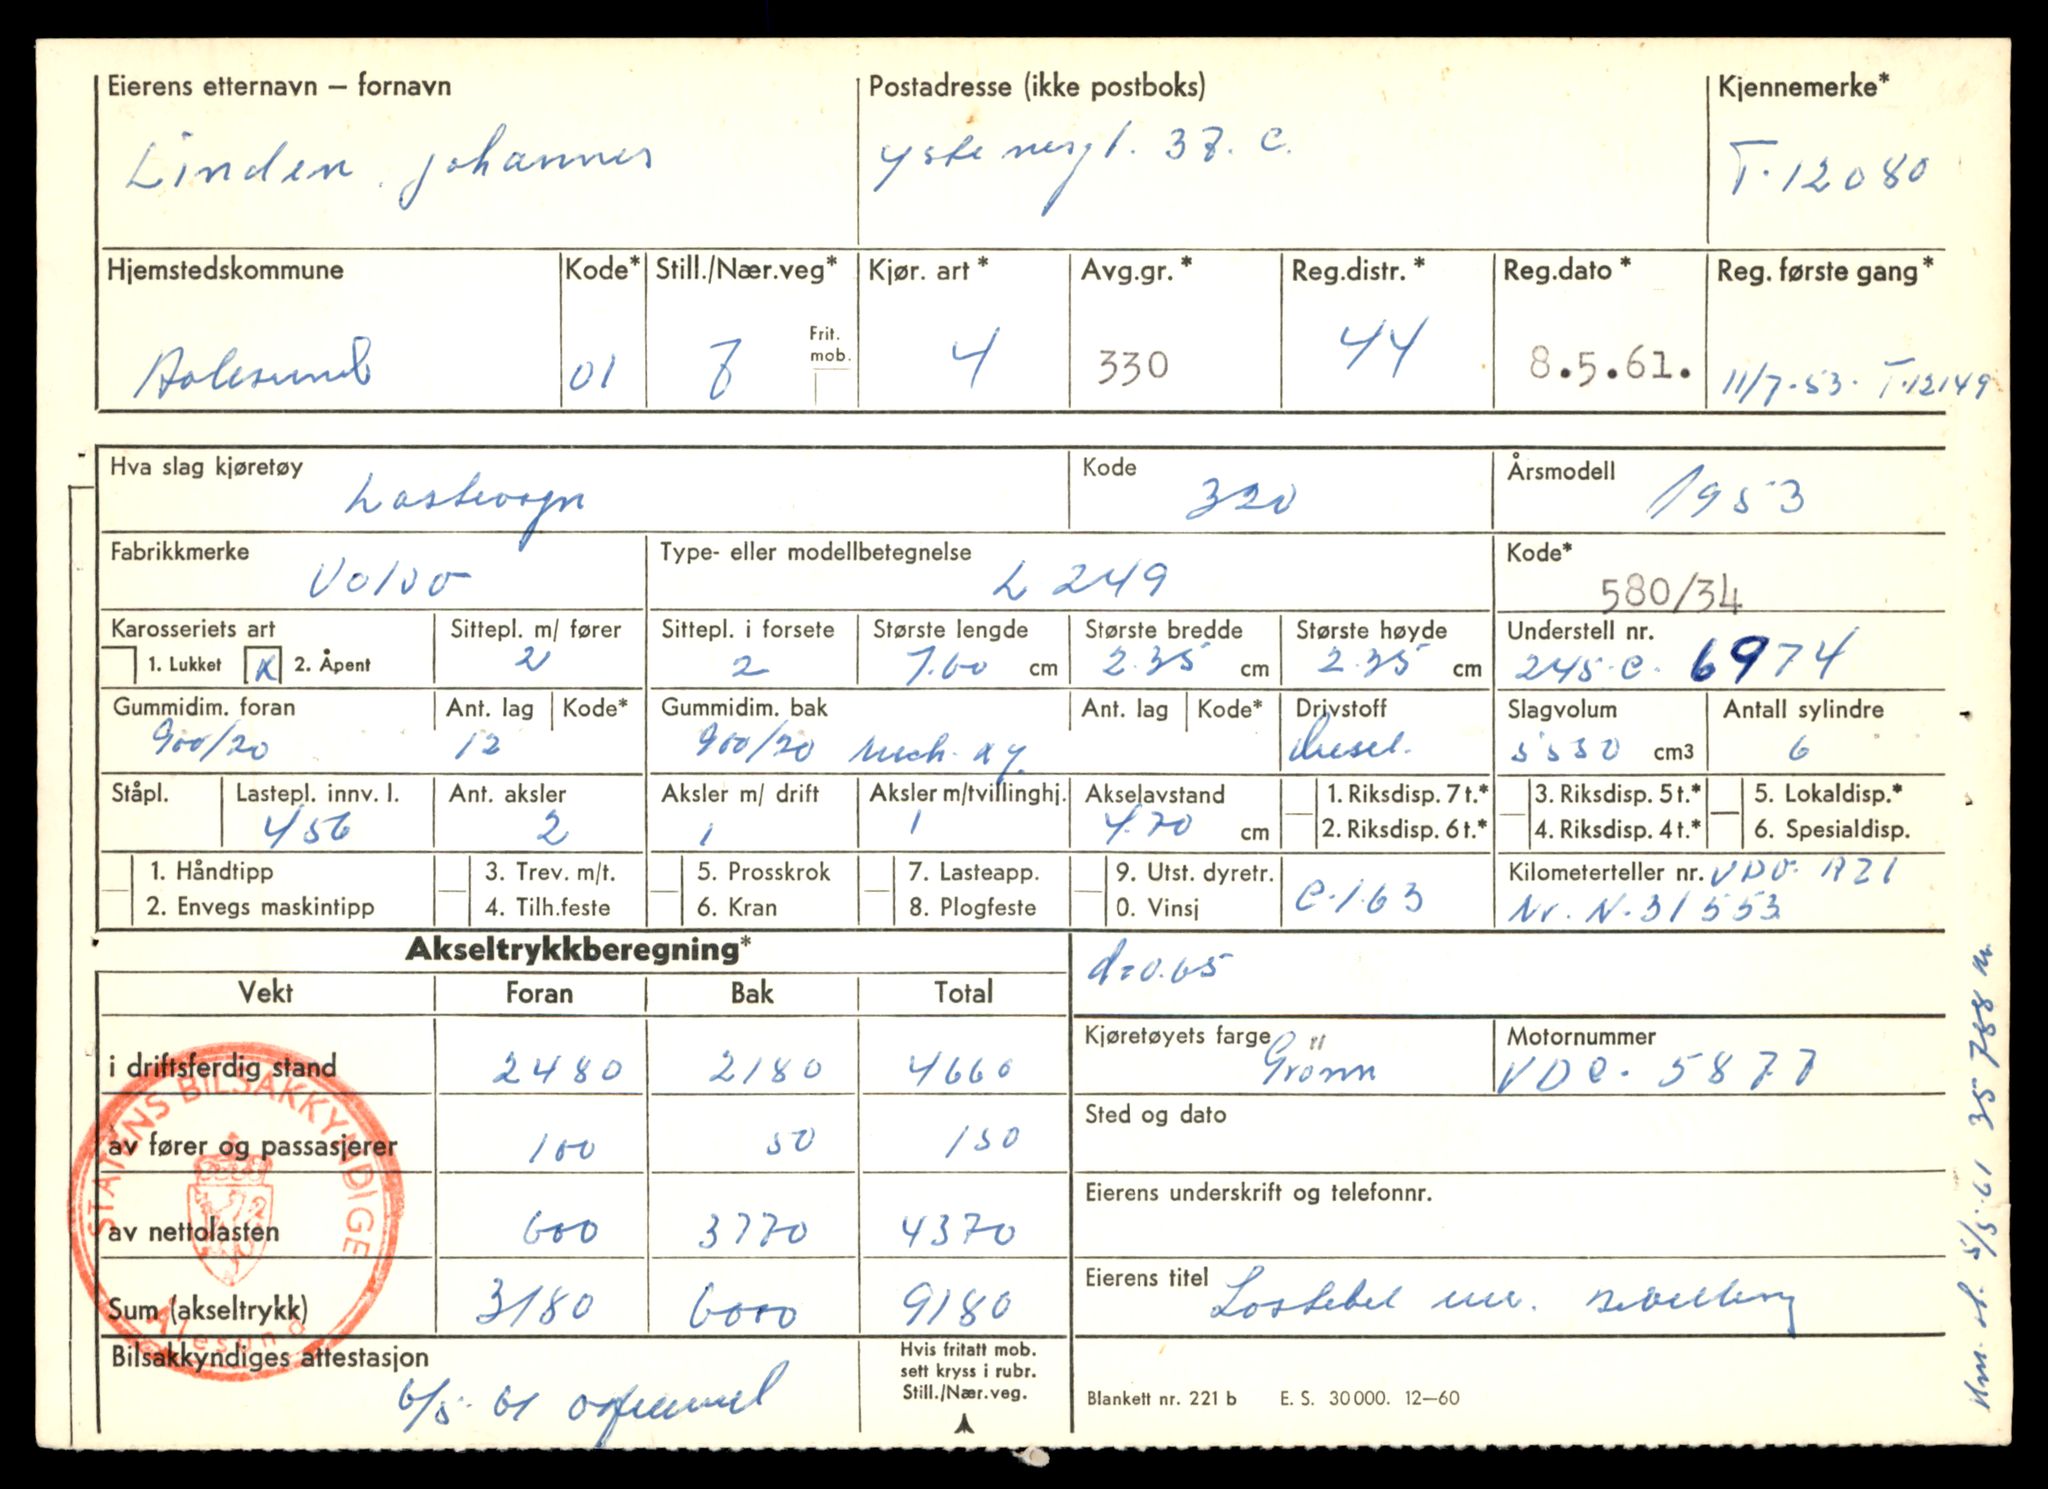 Eierens etternavn – fornavn Postadresse (ikke postboks) Kjennemerke*
Linden Johannes 37. C. T-12080
Hjemstedskommune Kode* Still./Nær.veg* Kjør. art* Avg.gr.* Reg.distr.* Reg.dato* Reg. første gang*
Frit.
mob.
Aalesund 01 7 4 330 44 8.5.61. 11/7-53. T-12149
Hva slag kjøretøy Kode Årsmodell
Lastevogn 320 1953
Fabrikkmerke Type- eller modellbetegnelse Kode*
Volvo L 249 580/34
Karosseriets art Sittepl. m/ fører Sittepl. i forsete Største lengde Største bredde Største høyde Understell nr.
1. Lukket x 2. Åpent 2 2 7.60 cm 2.35 cm 2.35 cm 245-C. 6974
Gummidim. foran Ant. lag Kode* Gummidim. bak Ant. lag Kode* Drivstoff Slagvolum Antall sylindre
900/20 12 900/20 Diesel. 5550 cm3 6
Ståpl. Lastepl. innv. l. Ant. aksler Aksler m/ drift Aksler m/tvillinghj. Akselavstand 1. Riksdisp. 7 t.* 3. Riksdisp. 5 t.* 5. Lokaldisp.*
456 2 1 1 4.70 cm 2. Riksdisp. 6 t.* 4. Riksdisp. 4 t.* 6. Spesialdisp.
1. Håndtipp 3. Trev. m/t. 5. Prosskrok 7. Lasteapp. 9. Utst. dyretr. Kilometerteller nr. VDO.
2. Envegs maskintipp 4. Tilh.feste 6. Kran 8. Plogfeste 0. Vinsj C.1.63 Nr. N.31553
Akseltrykkberegning*
d=0.65
Vekt Foran Bak Total
Kjøretøyets farge Motornummer
i driftsferdig stand 2480 2180 4660 Grönn VDC. 5877
Sted og dato
av fører og passasjerer 100 50 150
Eierens underskrift og telefonnr.
av nettolasten 600 3770 4370
Eierens titel Lastebil
Sum (akseltrykk) 3180 6000 9180
STATENS BILSAKKYNDIGE
Ålesund
Bilsakkyndiges attestasjon
6/5-61
Hvis fritatt mob.
sett kryss i rubr.
Still./Nær.veg.
Blankett nr. 221 b E. S. 30000. 12–60
5/5.61 35788